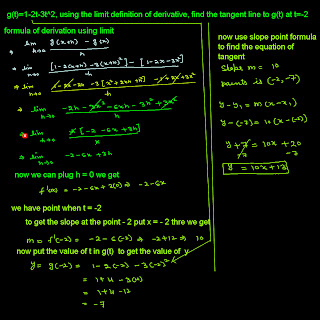 g(t)=1-2t-3t^2, using the limit definition of derivative, find the tangent line to g(t) at t=-2
formula of derivation using limit
⇒ lim h→0 g(x+h) - g(x) / h
⇒ lim h→0 [1-2(x+h) -3(x+h)²] - [1-2x-3x²] / h
⇒ lim h→0 1-2x-2h -3[x²+2xh+h²] -1+2x+3x² / h
⇒ lim h→0 -2h -3x² -6xh -3h² +3x² / h
⇒ lim h→0 h[-2 -6x +3h] / h
⇒ lim h→0 -2-6x +3h
now we can plug h = 0 we get
f'(x) = -2-6x +3(0) ⇒ -2-6x
we have point when t = -2
to get the slope at the point - 2 put x = - 2 thre we get
m = f'(-2) = -2-6(-2) ⇒ -2+12 ⇒ 10
now put the value of t in g(t) to get the value of y
y = g(-2) = 1-2(-2) -3(-2)²
= 1+4 -3(4)
= 1+4 -12
= -7
now use slope point formula
to find the equation of
tangent
Slope m = 10
points is (-2,-7)
y-y₁ = m(x-x₁)
y-(-7) = 10(x-(-2))
y+7 = 10x +20
-7 -7
y = 10x+13